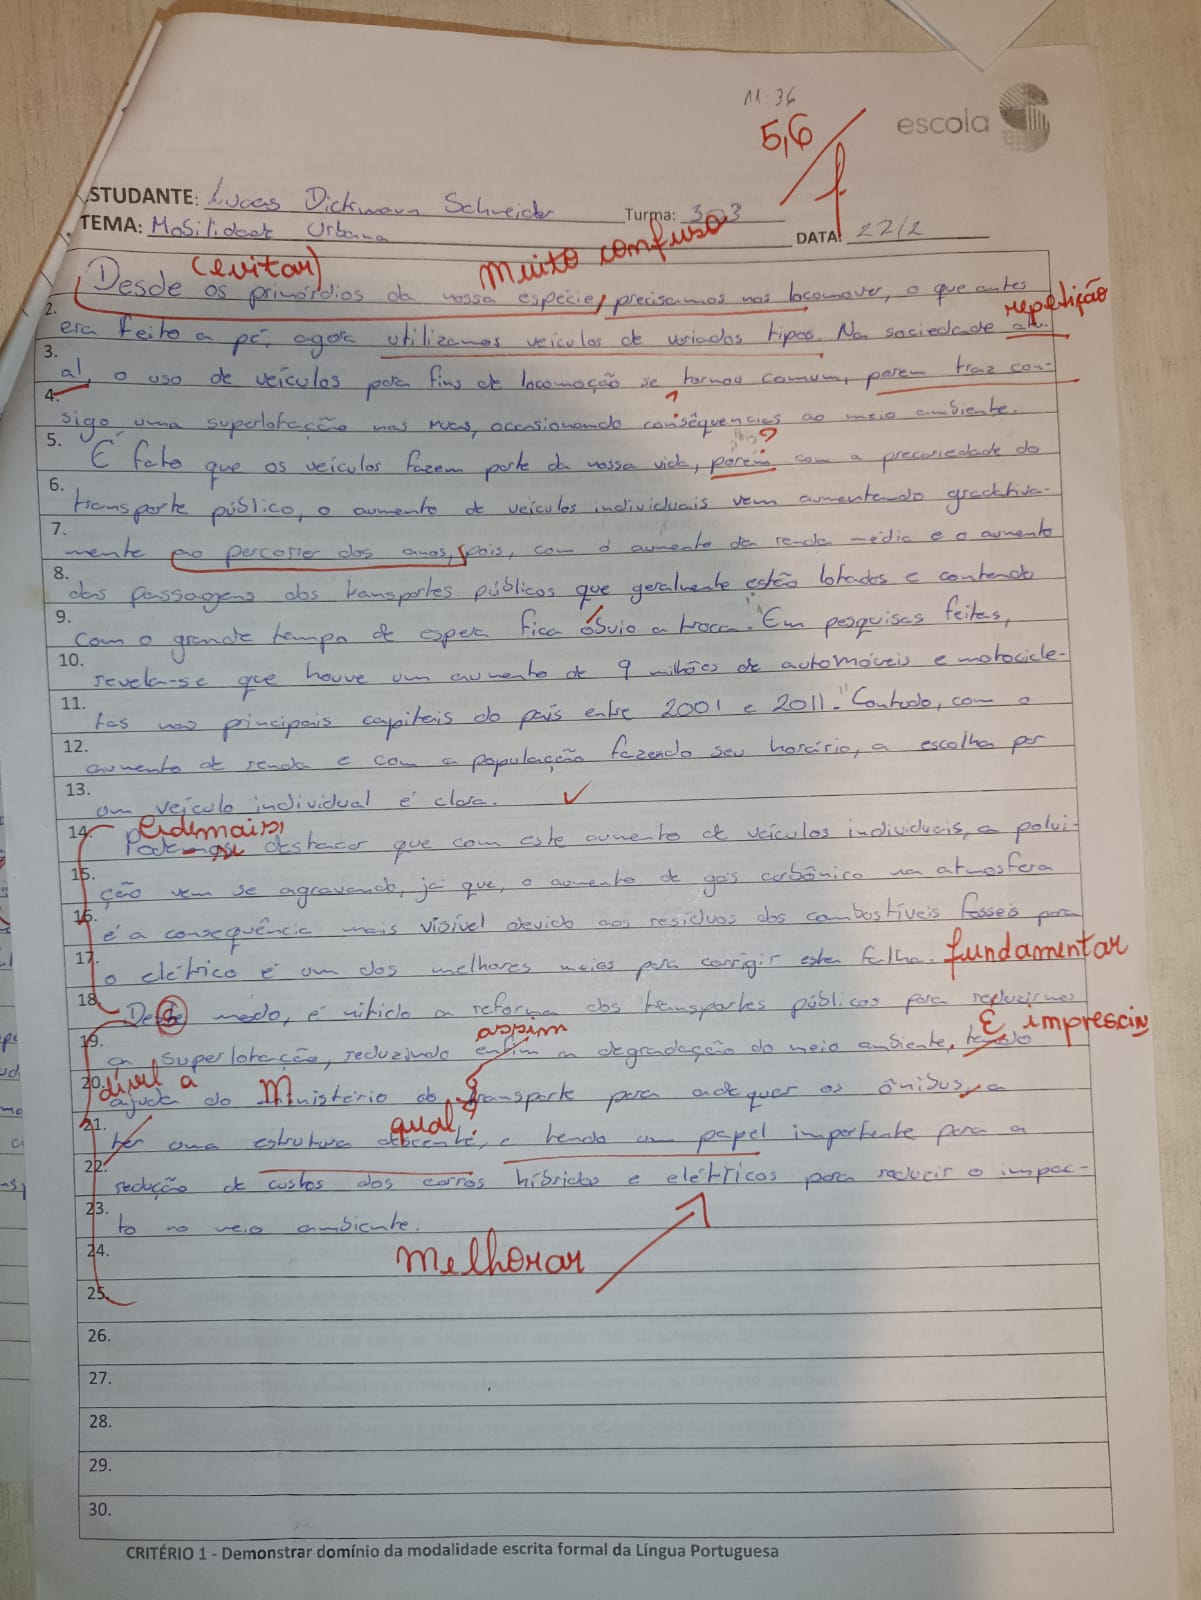 11:36
5,6
escola
STUDANTE: Lucas Dickmann Schneider Turma: 303
TEMA: Mobilidade Urbana DATA: 27/2
(evitar) Muito confuso
Desde os primórdios da nossa espécie, precisamos nos locomover, o que antes
repetição
2. era feito a pé, agora utilizamos veículos de variados tipos. Na sociedade atu-
3. al, o uso de veículos para fins de locomoção se tornou comum, porem traz con-
4. sigo uma superlotação nas ruas, ocasionando consêquencias ao meio ambiente.
?
5. É fato que os veículos fazem parte da nossa vida, porém com a precariedade do
6. transporte público, o aumento de veículos individuais vem aumentando gradativa-
7. mente ao percorrer dos anos, pois, com o aumento da renda média e o aumento
8. das passagens dos transportes públicos que geralmente estão lotados e contendo
9. com o grande tempo de espera fica óbvio a troca. "Em pesquisas feitas,
10. revela-se que houve um aumento de 9 milhões de automóveis e motocicle-
11. tas nas principais capitais do país entre 2001 e 2011." Contudo, com o
12. aumento de renda e com a população fazendo seu horário, a escolha por
13. um veículo individual é clara.
Ademais,
14. Podemos destacar que com este aumento de veículos individuais, a polui-
15. ção vem se agravando, já que, o aumento de gás carbônico na atmosfera
16. é a consequência mais visível devido aos resíduos dos combustíveis fosseis para
17. o elétrico é um dos melhores meios para corrigir esta falha. fundamentar
18. Deste modo, é nítido a reforma dos transportes públicos para reduzirmos
assim É imprescin
19. a superlotação, reduzindo enfim a degradação do meio ambiente, tendo
dível a
20. ajuda do Ministério do transporte para adequer os ônibus, a
qual
21. ter uma estrutura descente, e tendo um papel importante para a
22. redução de custos dos carros híbridos e elétricos para reduzir o impac-
23. to no meio ambiente.
24. Melhorar
25.
26.
27.
28.
29.
30.
CRITÉRIO 1 - Demonstrar domínio da modalidade escrita formal da Língua Portuguesa